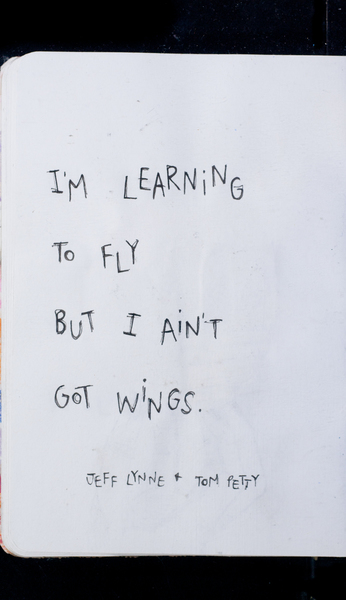 I'M LEARNiNG
To FLY
BUT I AiN'T
GOT WiNGS.
JEFF LYNNE + TOM PETTY